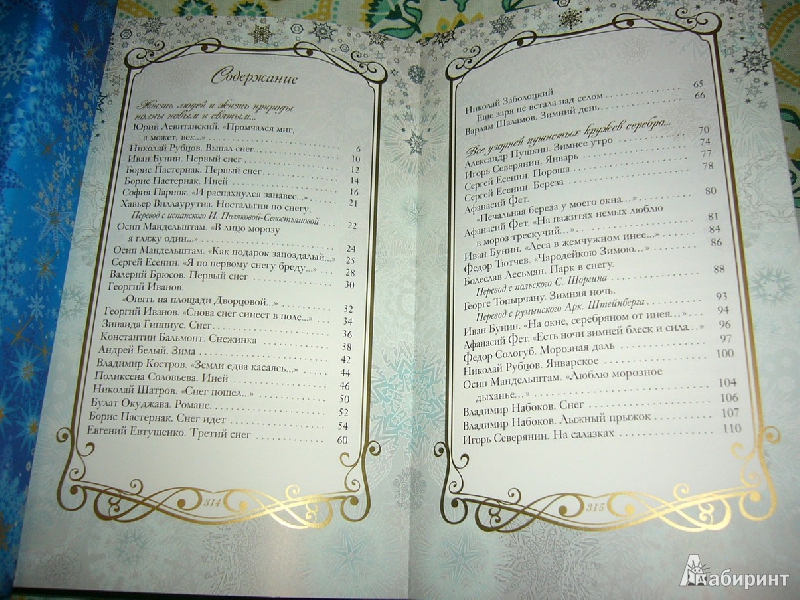 Содержание
Жизнь людей и жизнь природы
полны новым и святым...
Юрий Левитанский. «Промчался миг,
а может, век...»
Николай Рубцов. Выпал снег 6
Иван Бунин. Первый снег 10
Борис Пастернак. Первый снег 12
Борис Пастернак. Иней 14
София Парнок. «И распахнулся занавес...» 16
Хавьер Вильяуррутиа. Ностальгия по снегу. 21
Перевод с испанского И. Поляковой-Севостьяновой
Осип Мандельштам. «В лицо морозу 22
я гляжу один...»
Осип Мандельштам. «Как подарок запоздалый...» 24
Сергей Есенин. «Я по первому снегу бреду...» 25
Валерий Брюсов. Первый снег 28
Георгий Иванов. 30
«Опять на площади Дворцовой...»
Георгий Иванов. «Снова снег синеет в поле...» 32
Зинаида Гиппиус. Снег 34
Константин Бальмонт. Снежинка 36
Андрей Белый. Зима 38
Владимир Костров. «Земли едва касаясь...» 42
Поликсена Соловьева. Иней 44
Николай Шатров. «Снег пошел...» 46
Булат Окуджава. Романс 50
Борис Пастернак. Снег идет 52
Евгений Евтушенко. Третий снег 54
60
314
Николай Заболоцкий
Еще заря не встала над селом 65
Варлам Шаламов. Зимний день 66
Все уходней пушистых кружев серебра...
Александр Пушкин. Зимнее утро 70
Игорь Северянин. Январь 74
Сергей Есенин. Пороша 77
Сергей Есенин. Береза 78
Афанасий Фет.
«Печальная береза у моего окна...» 80
Афанасий Фет. «На пажитях немых люблю
в мороз трескучий...» 81
Иван Бунин. «Леса в жемчужном инее...» 84
Федор Тютчев. «Чародейкою Зимою...» 86
Болеслав Лесьмян. Парк в снегу.
Перевод с польского С. Шоргина 88
Георге Топырчану. Зимняя ночь.
Перевод с румынского Арк. Штейнберга 93
Иван Бунин. «На окне, серебряном от инея...» 94
Афанасий Фет. «Есть ночи зимней блеск и сила...» 96
Федор Сологуб. Морозная даль 97
Николай Рубцов. Январское 100
Осип Мандельштам. «Люблю морозное
дыханье...» 104
Владимир Набоков. Снег 106
Владимир Набоков. Лыжный прыжок 107
Игорь Северянин. На салазках 110
315
Лабиринт